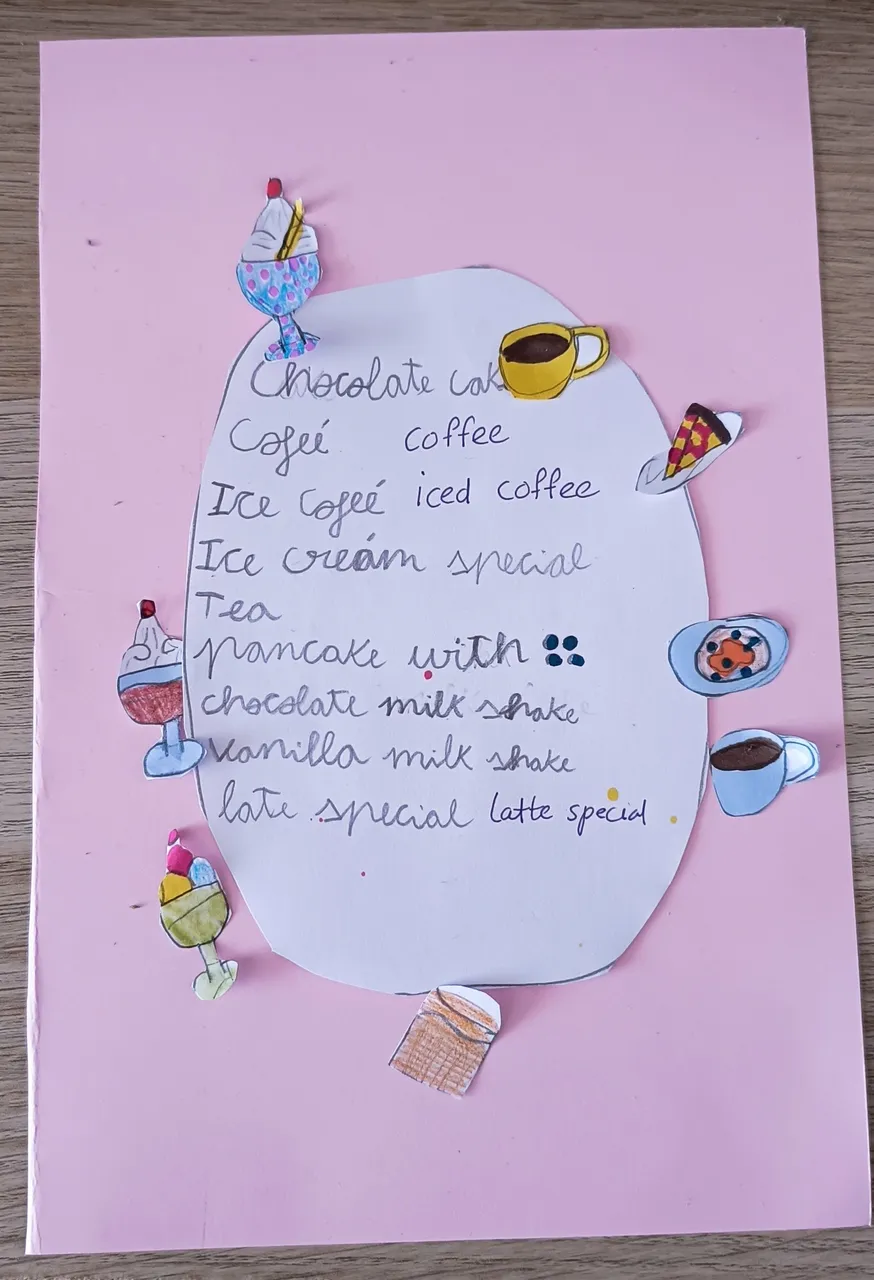 Chocolate cak
Cofeé coffee
Ice Cofeé iced coffee
Ice creám special
Tea
pancake with
chocolate milk shake
vanilla milk shake
late special latte special